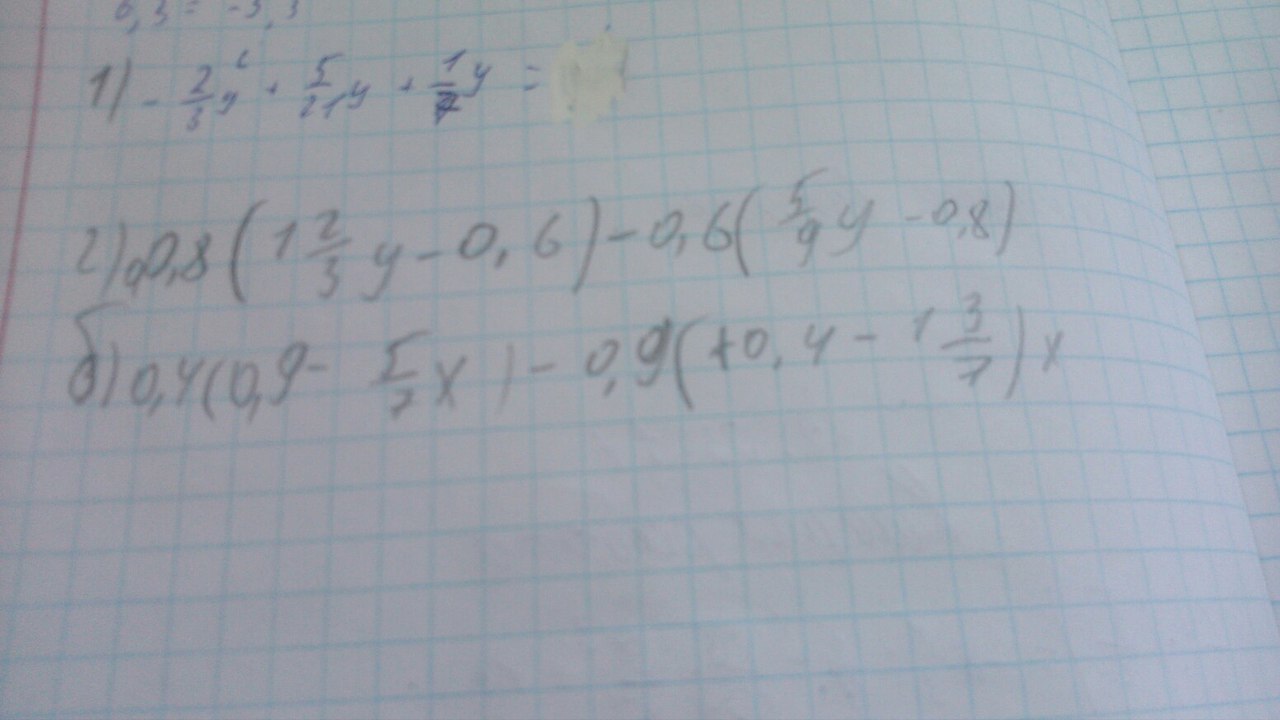 0,3 = -3,3
1) - 2/3 y + 5/21 y + 1/7 y =
2) 0,8 (1 2/3 y - 0,6) - 0,6 (5/9 y - 0,8)
б) 0,4 (0,9 - 5/7 x) - 0,9 (+0,4 - 1 3/7) x